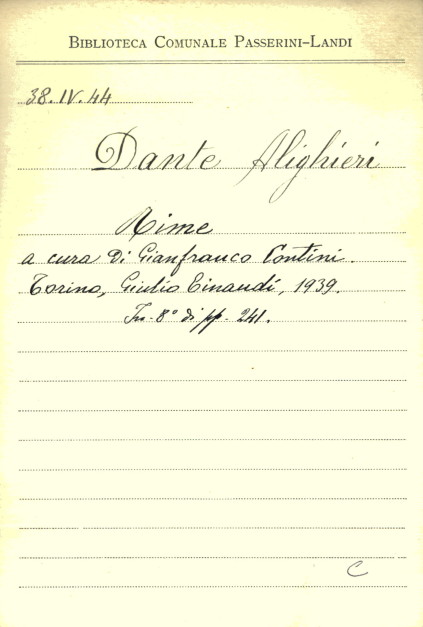 BIBLIOTECA COMUNALE PASSERINI-LANDI
38.IV.44
Dante Alighieri
Rime
a cura di Gianfranco Contini.
Torino, Giulio Einaudi, 1939.
In-8° di pp. 241.
C